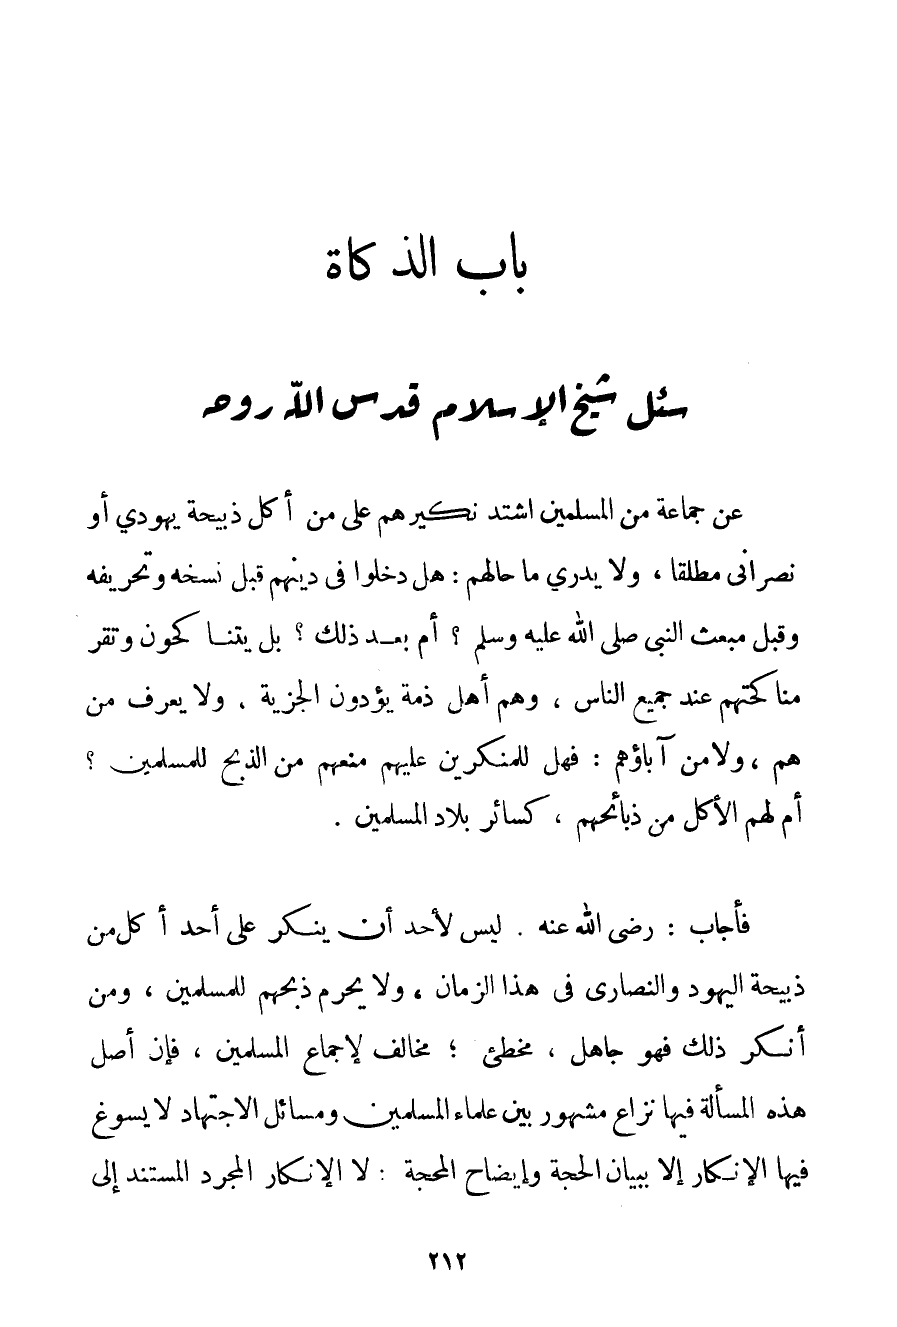 باب الذكاة
سئل شيخ الإسلام قدس الله روحه
عن جماعة من المسلمين اشتد نكيرهم على من أكل ذبيحة يهودي أو
نصرانى مطلقا ، ولا يدري ما حالهم : هل دخلوا فى دينهم قبل نسخه وتحريفه
وقبل مبعث النبي صلى الله عليه وسلم ؟ أم بعد ذلك ؟ بل يتناكحون وتقر
مناكحتهم عند جميع الناس ، وهم أهل ذمة يؤدون الجزية ، ولا يعرف من
هم ، ولا من آباؤهم : فهل للمنكرين عليهم منعهم من الذبح للمسلمين ؟
أم لهم الأكل من ذبائحهم ، كسائر بلاد المسلمين .
فأجاب : رضى الله عنه . ليس لأحد أن ينكر على أحد أكل من
ذبيحة اليهود والنصارى فى هذا الزمان ، ولا يحرم ذبحهم للمسلمين ، ومن
أنكر ذلك فهو جاهل ، مخطئ ؛ مخالف لإجماع المسلمين ، فإن أصل
هذه المسألة فيها نزاع مشهور بين علماء المسلمين ومسائل الاجتهاد لا يسوغ
فيها الإنكار إلا ببيان الحجة وإيضاح المحجة : لا الإنكار المجرد المستند إلى
٢١٢